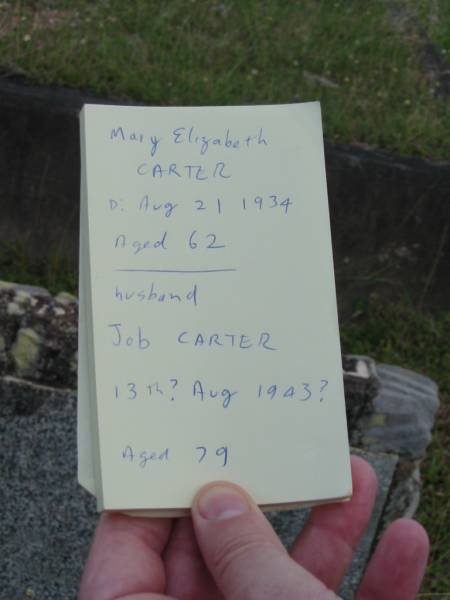 Mary Elizabeth
CARTER
D: Aug 21 1934
Aged 62
husband
Job CARTER
13th? Aug 1943?
Aged 79